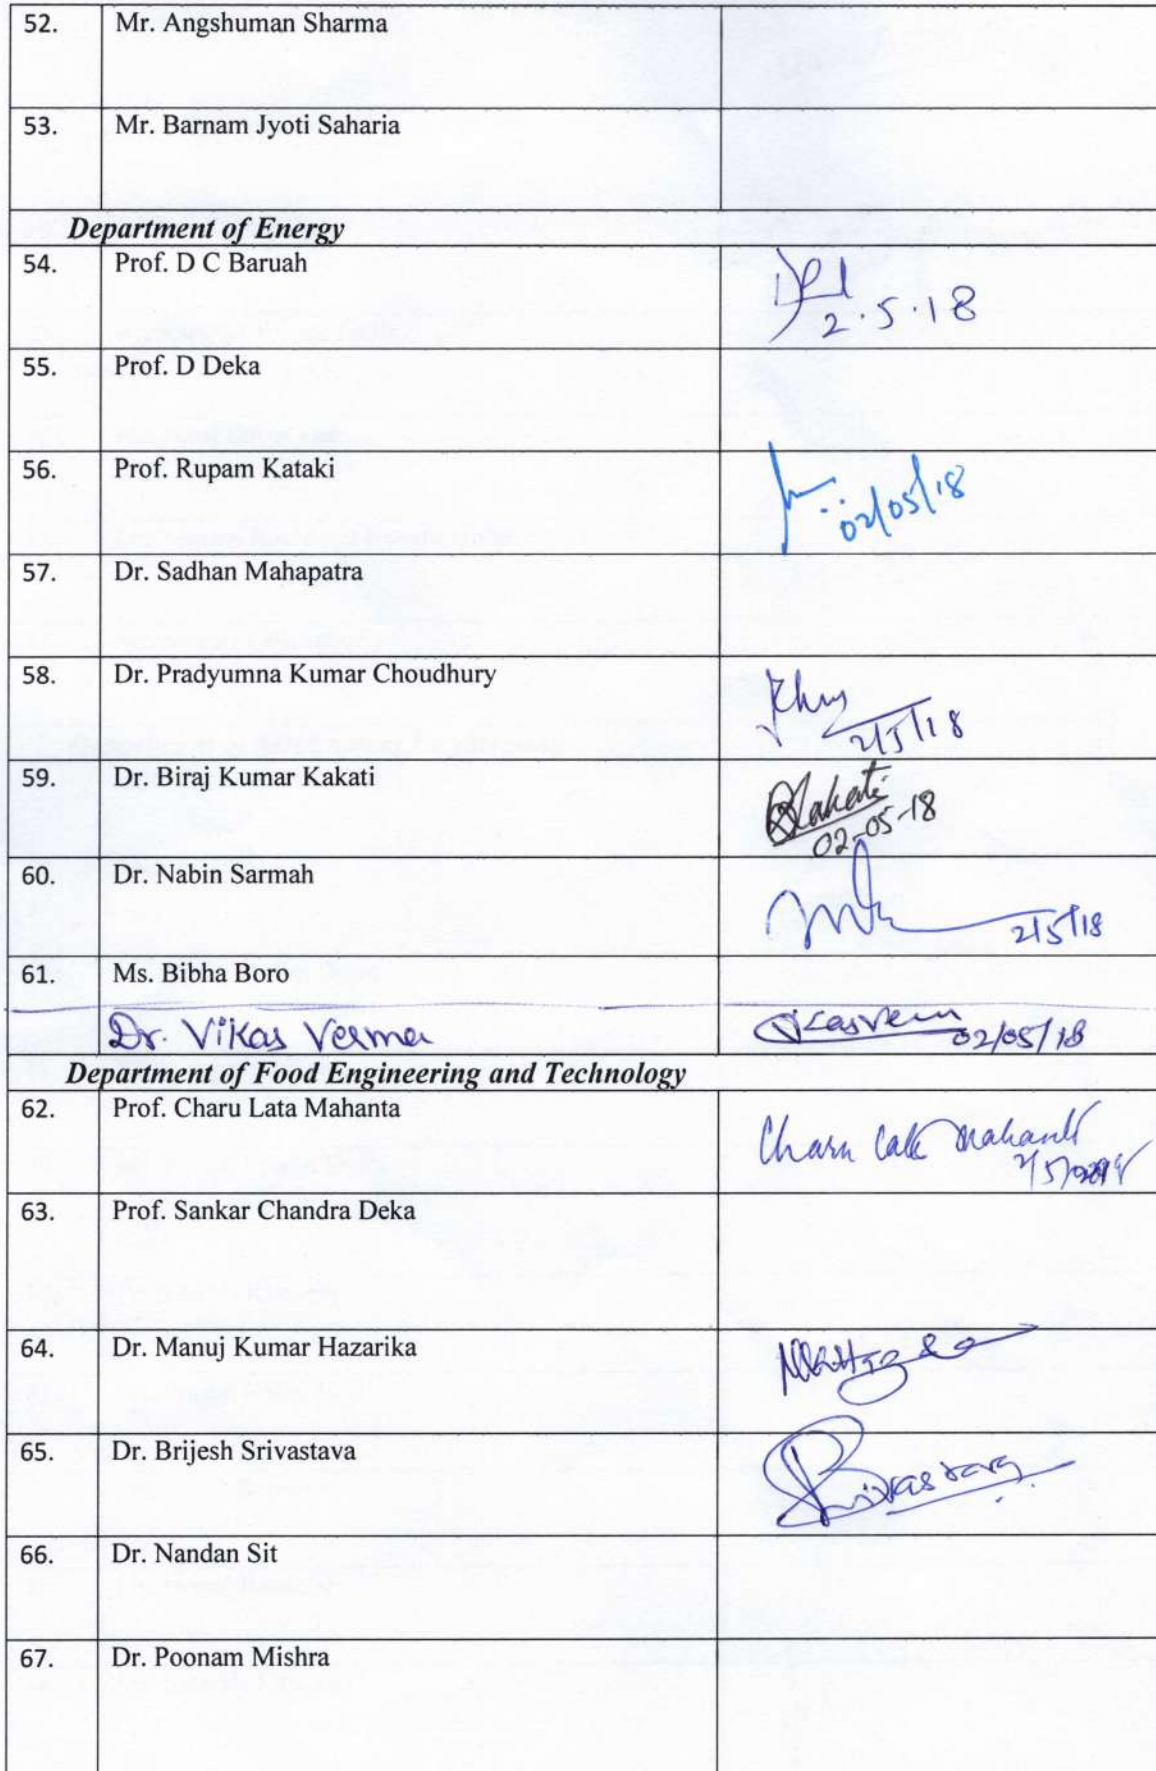 52. Mr. Angshuman Sharma
53. Mr. Barnam Jyoti Saharia
Department of Energy
54. Prof. D C Baruah
2.5.18
55. Prof. D Deka
56. Prof. Rupam Kataki
02/05/18
57. Dr. Sadhan Mahapatra
58. Dr. Pradyumna Kumar Choudhury
2/5/18
59. Dr. Biraj Kumar Kakati Kakati
02-05-18
60. Dr. Nabin Sarmah
2/5/18
61. Ms. Bibha Boro
Dr. Vikas Verma
02/05/18
Department of Food Engineering and Technology
62. Prof. Charu Lata Mahanta Charu Lata Mahanta
63. Prof. Sankar Chandra Deka
64. Dr. Manuj Kumar Hazarika
65. Dr. Brijesh Srivastava Srivastava
66. Dr. Nandan Sit
67. Dr. Poonam Mishra